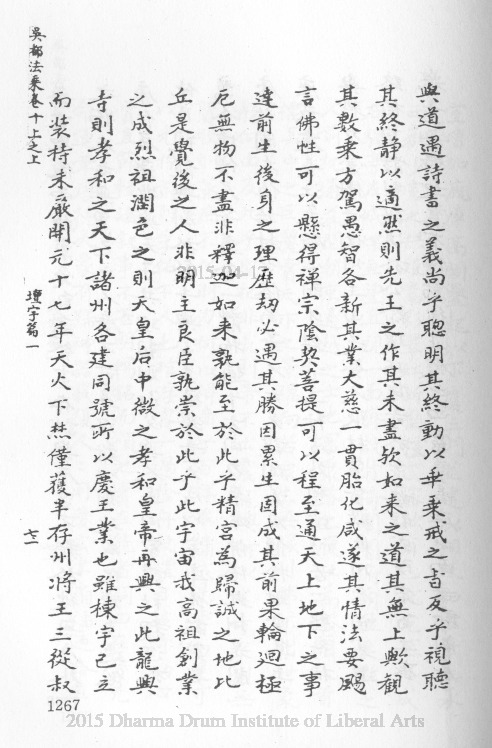 與道遇詩書之義尚乎聰明其終動以乖乘戒之言反乎視聽
其終靜以適然則先王之作其未盡欤如來之道其無上歟觀
其數乘方駕愚智各新其業大慈一貫胎化咸遂其情法要颺
言佛性可以懸得禅宗陰契菩提可以程至通天上地下之事
達前生後身之理歷劫必遇其勝因累生固成其前果輪迴極
厄無物不盡非釋迦如來孰能至於此乎精宮為歸誠之地比
丘是覺後之人非明主良臣孰崇於此乎此宇宙我高祖創業
之成烈祖潤色之則天皇后中微之孝和皇帝再興之此龍興
寺則孝和之天下諸州各建同號所以慶王業也雖棟宇已立
而裝持未嚴開元十七年天火下焚僅獲半存州將王三從叔
吳都法乘卷十上之上
壇宇篇一
1267
2015-04-17
2015 Dharma Drum Institute of Liberal Arts